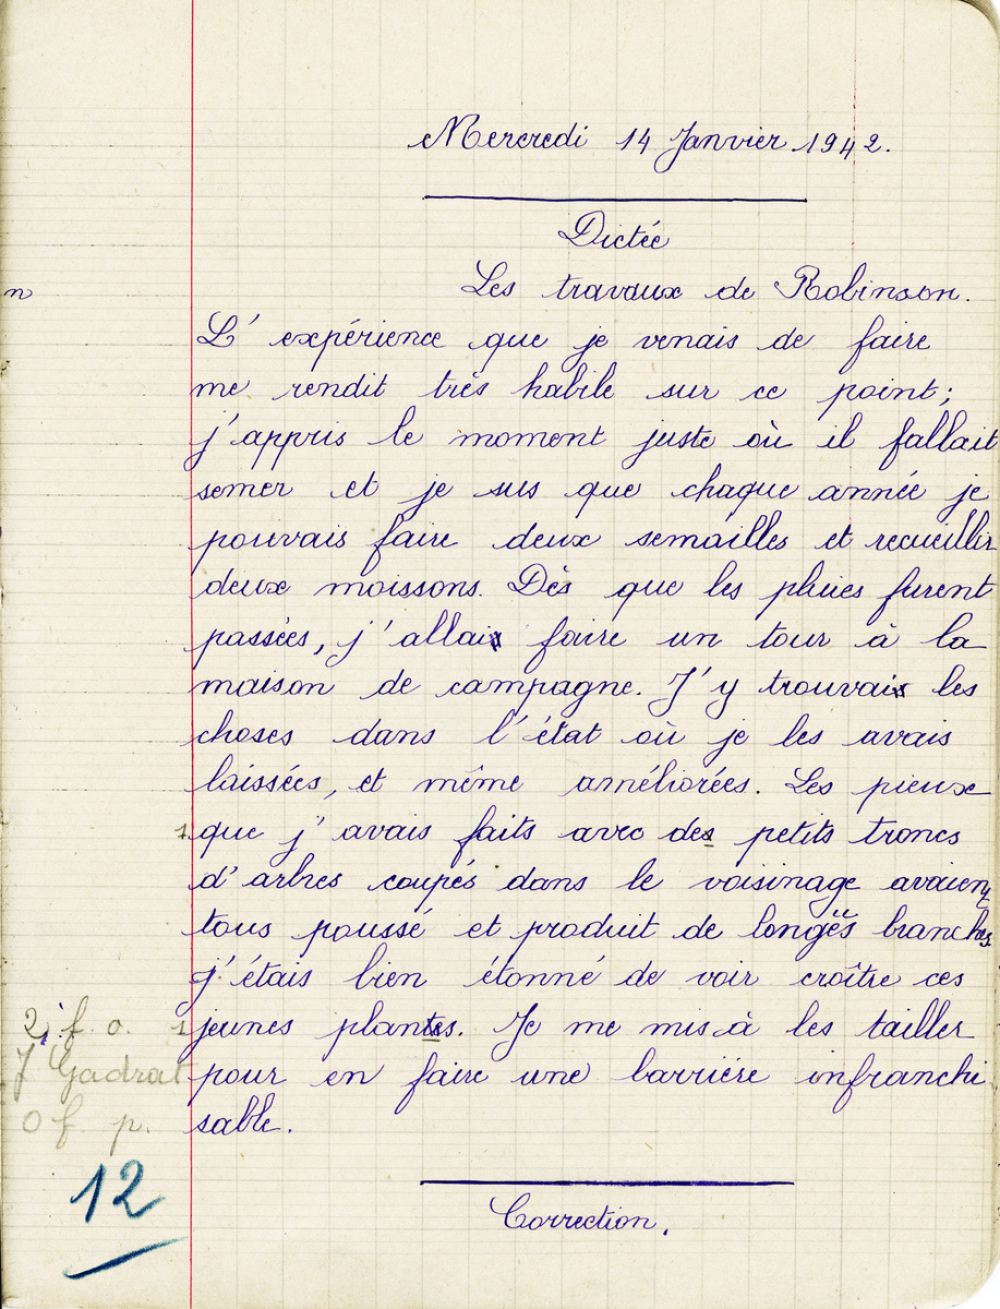 Mercredi 14 Janvier 1942.
Dictée
Les travaux de Robinson.
n
L'expérience que je venais de faire
me rendit très habile sur ce point ;
j'appris le moment juste où il fallait
semer et je sus que chaque année je
pouvais faire deux semailles et recueillir
deux moissons. Dès que les pluies furent
passées, j'allais faire un tour à la
maison de campagne. J'y trouvais les
choses dans l'état où je les avais
laissées, et même améliorées. Les pieux
1 que j'avais faits avec des petits troncs
d'arbres coupés dans le voisinage avaient
tous poussé et produit de longës branches
j'étais bien étonné de voir croître ces
2j. f. o. 1 jeunes plantes. Je me mis à les tailler
J Gadrat pour en faire une barrière infranchi
0 f. p. sable.
12
Correction.